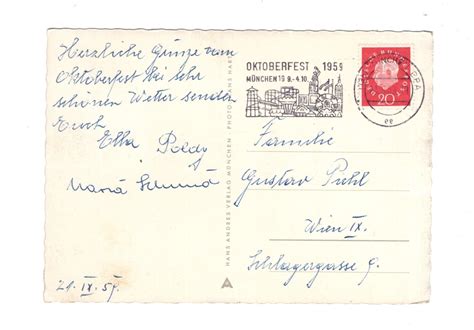 Herzliche Grüße vom
Oktoberfest bei sehr
schönen Wetter senden
Euch Ella Poldy
Maria Schmid
21. IX. 59.
HANS ANDRES VERLAG MÜNCHEN · PHOTO: HANS HABE
A
OKTOBERFEST 1959
MÜNCHEN 19.9.-4.10.
20
ee
Familie
Gustav Puhl
Wien IX.
Schlagergasse 9.